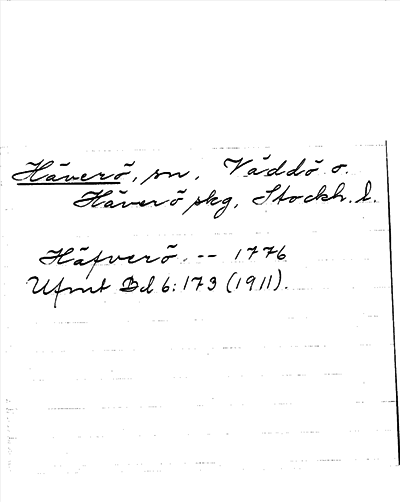 Häverö, sn, Väddö o.
Häverö skg, Stockh. l.
Häfverö -- 1776
Ufmt Bd 6:173 (1911).